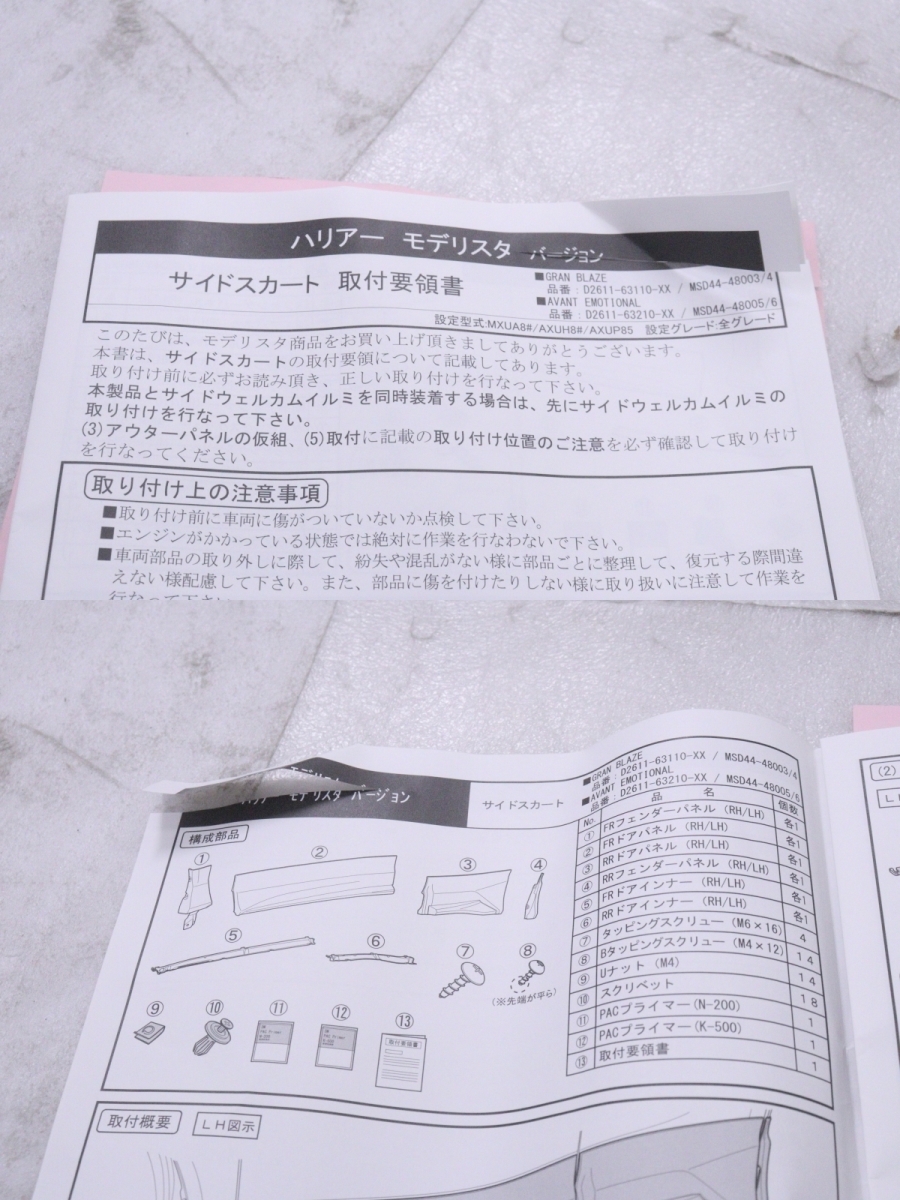 ハリアー モデリスタ バージョン
サイドスカート 取付要領書
■GRAN BLAZE
品番：D2611-63110-XX / MSD44-48003/4
■AVANT EMOTIONAL
品番：D2611-63210-XX / MSD44-48005/6
設定型式:MXUA8#/AXUH8#/AXUP85 設定グレード:全グレード
このたびは、モデリスタ商品をお買い上げ頂きましてありがとうございます。
本書は、サイドスカートの取付要領について記載してあります。
取り付け前に必ずお読み頂き、正しい取り付けを行なって下さい。
本製品とサイドウェルカムイルミを同時装着する場合は、先にサイドウェルカムイルミの
取り付けを行なって下さい。
(3)アウターパネルの仮組、(5)取付に記載の取り付け位置のご注意を必ず確認して取り付け
を行なってください。
取り付け上の注意事項
■取り付け前に車両に傷がついていないか点検して下さい。
■エンジンがかかっている状態では絶対に作業を行なわないで下さい。
■車両部品の取り外しに際して、紛失や混乱がない様に部品ごとに整理して、復元する際間違
えない様配慮して下さい。また、部品に傷を付けたりしない様に取り扱いに注意して作業を
行なって下さい
ハリアー モデリスタ バージョン
サイドスカート
■GRAN BLAZE
品番：D2611-63110-XX / MSD44-48003/4
■AVANT EMOTIONAL
品番：D2611-63210-XX / MSD44-48005/6
構成部品
No. 品 名 個数
① FRフェンダーパネル (RH/LH) 各1
② FRドアパネル (RH/LH) 各1
③ RRドアパネル (RH/LH) 各1
④ RRフェンダーパネル (RH/LH) 各1
⑤ FRドアインナー (RH/LH) 各1
⑥ RRドアインナー (RH/LH) 各1
⑦ タッピングスクリュー (M6×16) 4
⑧ Bタッピングスクリュー (M4×12) 14
⑨ Uナット (M4) 14
⑩ スクリベット 18
⑪ PACプライマー(N-200) 1
⑫ PACプライマー(K-500) 1
⑬ 取付要領書 1
① ② ③ ④
⑤ ⑥ ⑦ ⑧
(※先端が平ら)
⑨ ⑩ ⑪ ⑫ ⑬
取付要領書
取付概要 LH図示
(2)